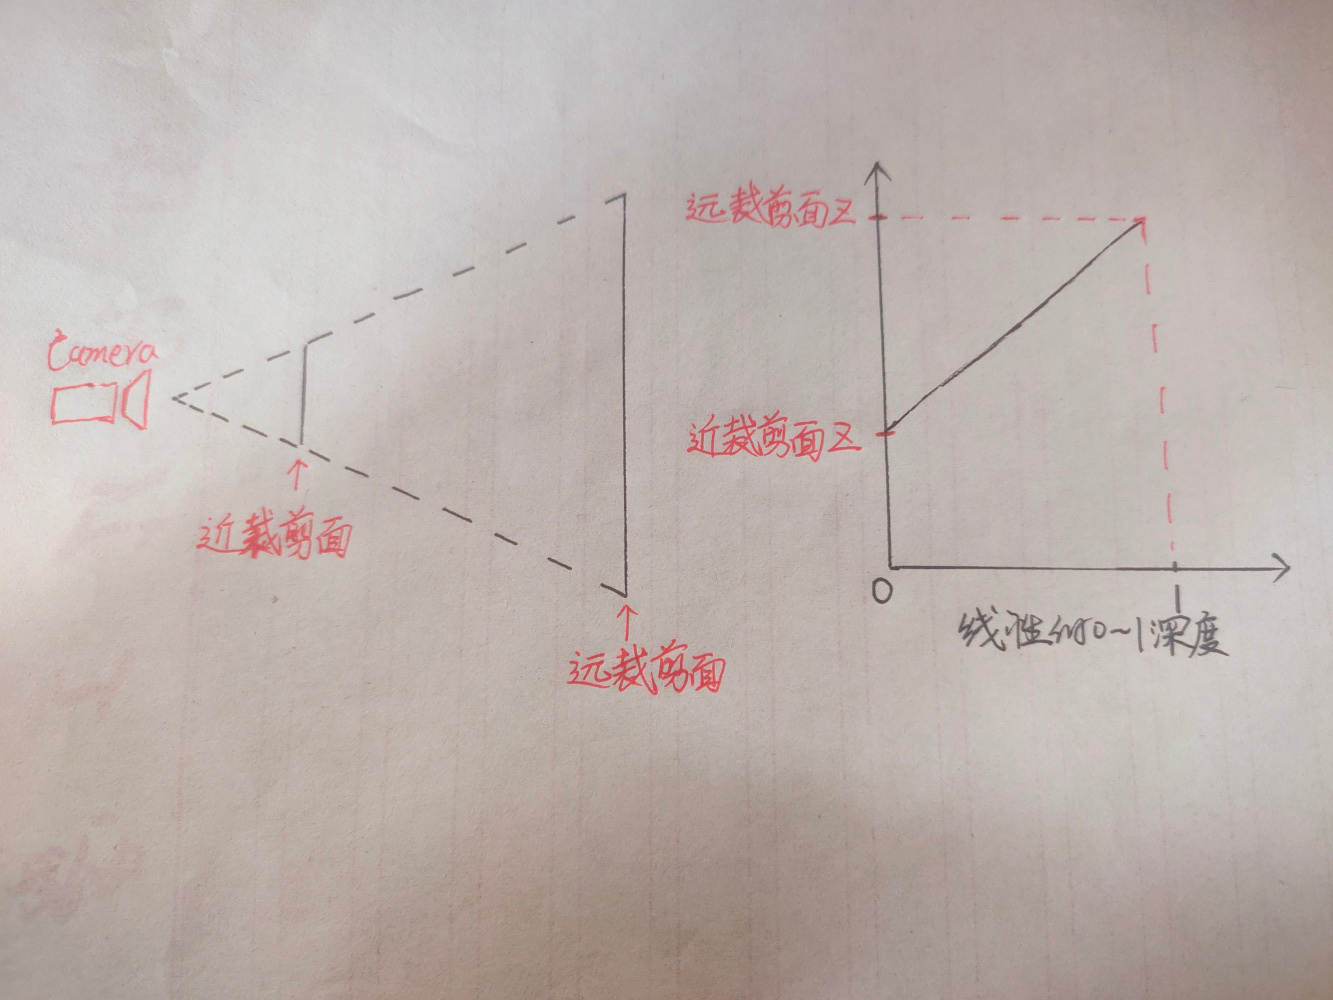 Camera
近裁剪面
远裁剪面
远裁剪面Z
近裁剪面Z
0
1
线性的0~1深度